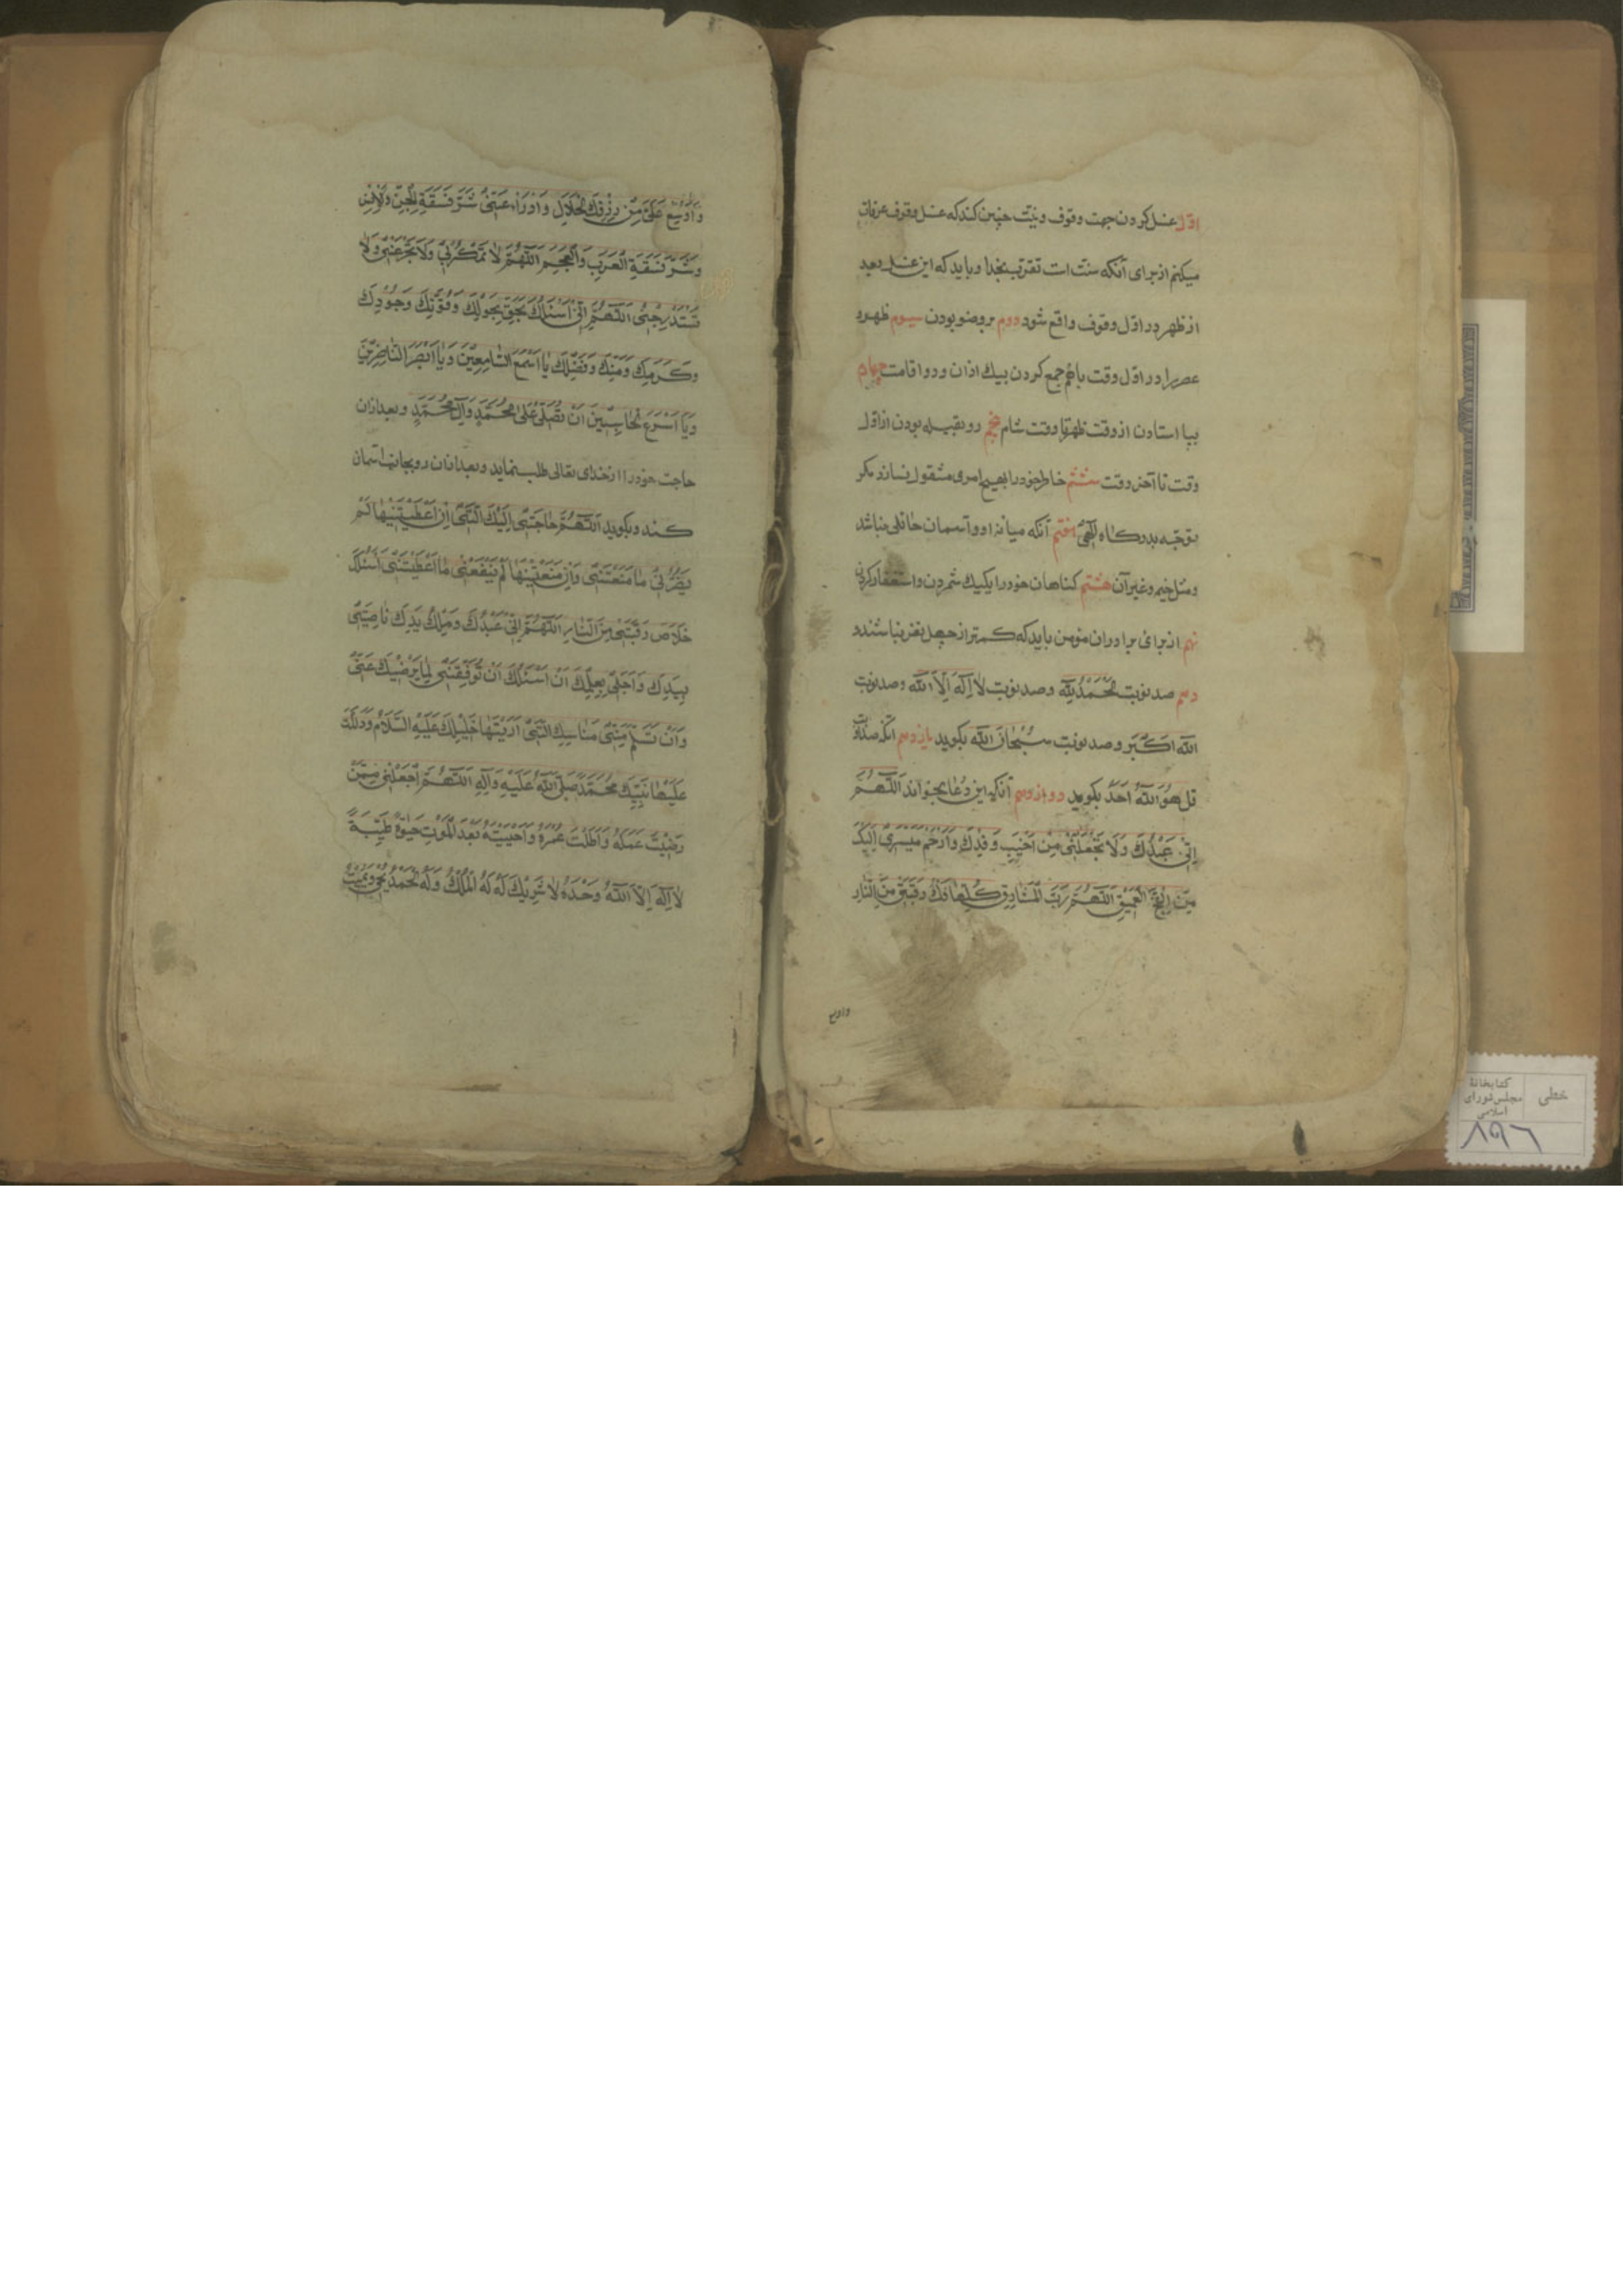 اوّل غسل کردن جهت وقوف و نیّت چنین کند که غسل وقوف عرفات
میکنم از برای آنکه سنّت است تقرّب بخدا و باید که این غسل بعد
از ظهر در اوّل وقوف واقع شود دوم بر وضو بودن سیوم ظهر و
عصر را در اوّل وقت باهم جمع کردن بیك اذان و دو اقامت چهارم
بپا استادن از وقت ظهر تا وقت شام پنجم رو بقبله بودن از اوّل
وقت تا آخر وقت ششم خاطر خود را بهیچ امری مشغول نسازد مکر
توجّه بدرکاه الٓهی هفتم آنکه میانه او و آسمان حائلی نباشد
و مثل خیمه و غیر آن هشتم کناهان خود را یکیك شمردن و استغفار کردن
نهم از برای برادران مؤمن باید که کمتر از چهل نفر نباشند و
دهم صد نوبت الحَمْدُ لِلّه و صد نوبت لا اِلَهَ اِلّا اللّه و صد نوبت
اللّه اَکْبَر و صد نوبت سُبْحانَ اللّه بکوید یازدهم آنکه صد نوبت
قل هُوَ اللّهُ اَحَدٌ بکوید دوازدهم آنکه این دُعا بخواند اَللّهُمَّ
اِنّی عَبْدُكَ وَلا تَجْعَلْنی مِنْ اَخْیَبِ وَفْدِكَ وَارْحَمْ مَسیری اِلَیْكَ
مِنَ الْفَجِّ الْعَمیقِ اَللّهُمَّ رَبَّ الْمَشاعِرِ کُلِّها فُكَّ رَقَبَتی مِنَ النّارِ
واوسع
وَاَوْسِعْ عَلَیَّ مِنْ رِزْقِكَ الْحَلالِ وَادْرَاْ عَنّی شَرَّ فَسَقَةِ الْجِنِّ وَالْاِنْسِ
وَشَرَّ فَسَقَةِ الْعَرَبِ وَالْعَجَمِ اَللّهُمَّ لا تَمْکُرْ بی وَلا تَخْدَعْنی وَلا
تَسْتَدْرِجْنی اَللّهُمَّ اِنّی اَسْئَلُكَ بِحَقِّ بِحَوْلِكَ وَقُوَّتِكَ وَجُودِكَ
وَکَرَمِكَ وَمَنِّكَ وَفَضْلِكَ یا اَسْمَعَ السّامِعینَ وَیا اَبْصَرَ النّاظِرینَ
وَیا اَسْرَعَ الْحاسِبینَ اَنْ تُصَلِّیَ عَلی مُحَمَّدٍ وَآلِ مُحَمَّدٍ و بعد ازان
حاجت خود را از خدای تعالی طلب نماید و بعد ازان رو بجانب اسمان
کند و بکوید اَللّهُمَّ حاجَتی اِلَیْكَ الَّتی اِنْ اَعْطَیْتَنیها لَمْ
یَضُرَّنی ما مَنَعْتَنی وَاِنْ مَنَعْتَنیها لَمْ یَنْفَعْنی ما اَعْطَیْتَنی اَسْئَلُكَ
خَلاصَ رَقَبَتی مِنَ النّارِ اَللّهُمَّ اِنّی عَبْدُكَ وَمِلْكُ یَدِكَ ناصِیَتی
بِیَدِكَ وَاَجَلی بِعِلْمِكَ اَنْ اَسْئَلُكَ اَنْ تُوَفِّقَنی لِما یُرْضیكَ عَنّی
وَاَنْ تَسَلَّمَ مِنّی مَناسِكِیَ الَّتی اَرَیْتَها خَلیلَكَ عَلَیْهِ السَّلامُ وَدَلَلْتَ
عَلَیْها نَبِیَّكَ مُحَمَّدًا صَلَّی اللّهُ عَلَیْهِ وَآلِهِ اَللّهُمَّ اجْعَلْنی مِمَّنْ
رَضیتَ عَمَلَهُ وَاَطَلْتَ عُمْرَهُ وَاَحْیَیْتَهُ بَعْدَ الْمَوْتِ حَیوةً طَیِّبَةً
لا اِلَهَ اِلَّا اللّهُ وَحْدَهُ لا شَریكَ لَهُ لَهُ الْمُلْكُ وَلَهُ الْحَمْدُ یُحْیی وَیُمیتُ
خطی
کتابخانهٔ
مجلس شورای
اسلامی
۸۹۶